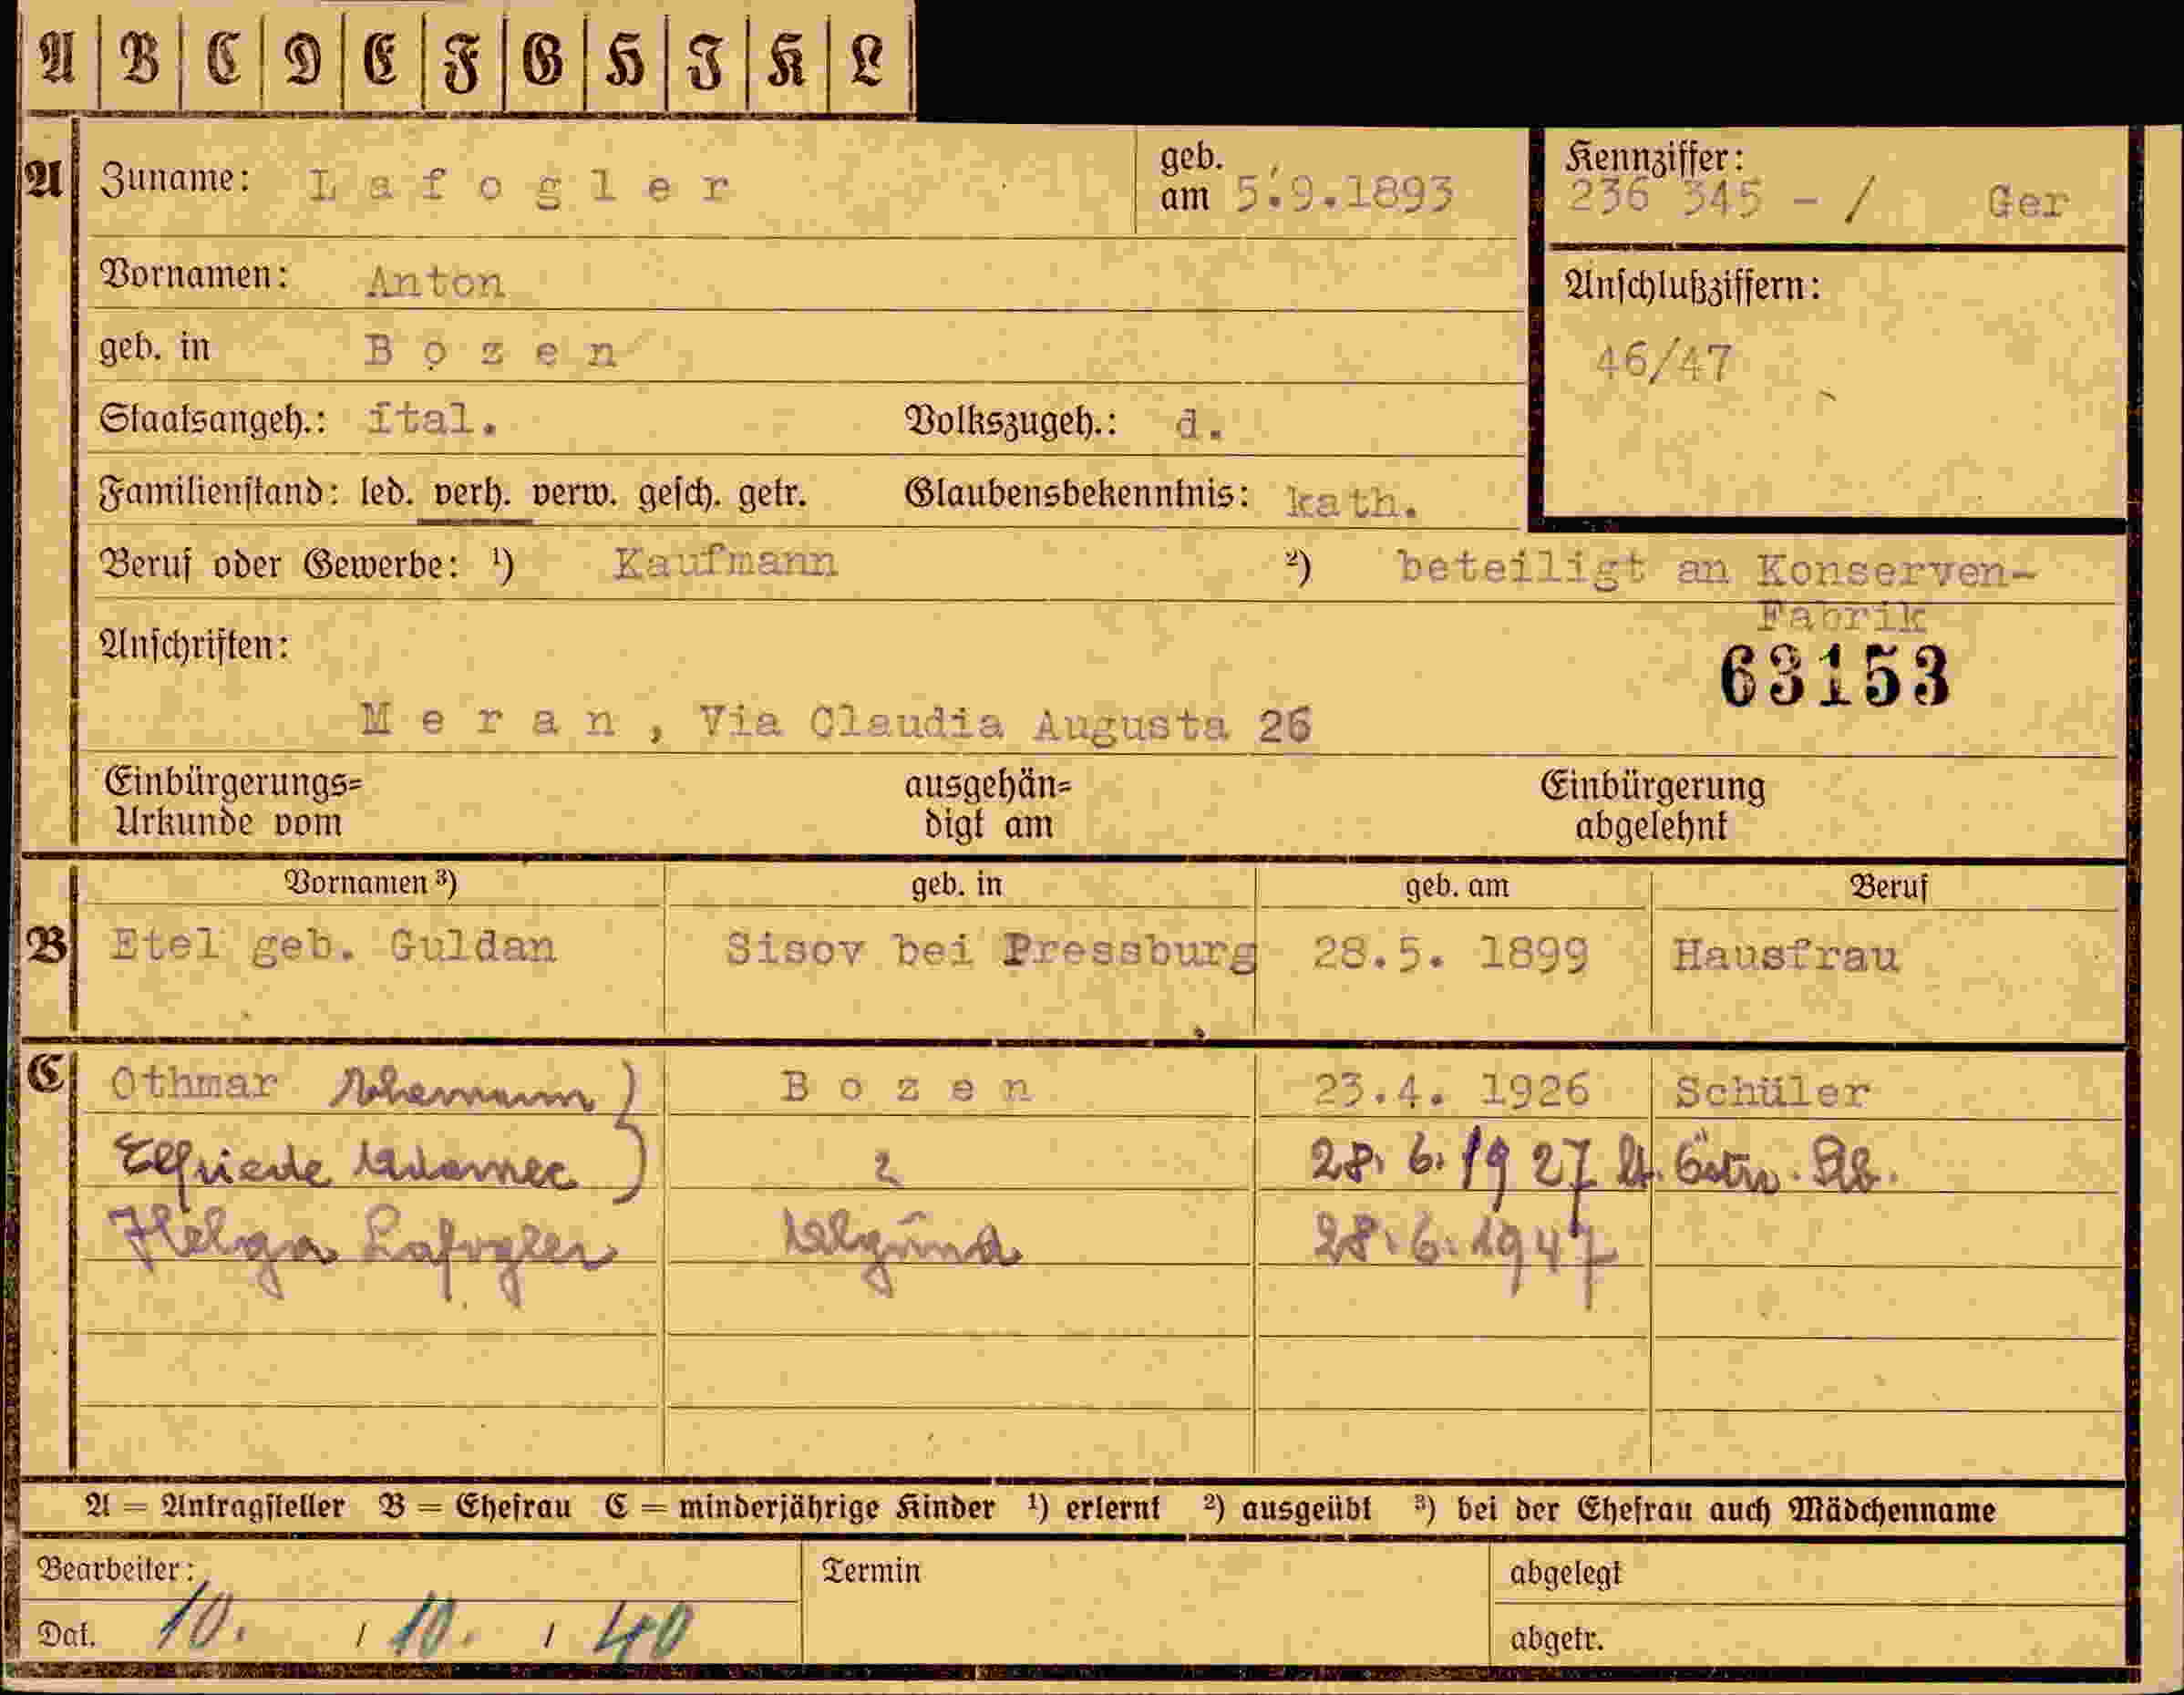 A B C D E F G H J K L
A Zuname: Lafogler geb. am 5.9.1893
Kennziffer: 236 345 - / Ger
Vornamen: Anton
Anschlußziffern:
geb. in Bozen
46/47
Staatsangeh.: ital. Volkszugeh.: d.
Familienstand: led. verh. verw. gesch. getr. Glaubensbekenntnis: kath.
Beruf oder Gewerbe: ¹) Kaufmann ²) beteiligt an Konserven-
Fabrik
Anschriften:
63153
Meran, Via Claudia Augusta 26
Einbürgerungs= ausgehän= Einbürgerung
Urkunde vom digt am abgelehnt
Vornamen ³) geb. in geb. am Beruf
B Etel geb. Guldan Sisov bei Pressburg 28.5. 1899 Hausfrau
C Othmar Bozen 23.4. 1926 Schüler
Elfriede 28.6.1927 lt. Östr.
Helga Lafogler Algund 28.6.1947
A = Antragsteller B = Ehefrau C = minderjährige Kinder ¹) erlernt ²) ausgeübt ³) bei der Ehefrau auch Mädchenname
Bearbeiter: Termin abgelegt
Dat. 10. / 10. / 40 abgetr.